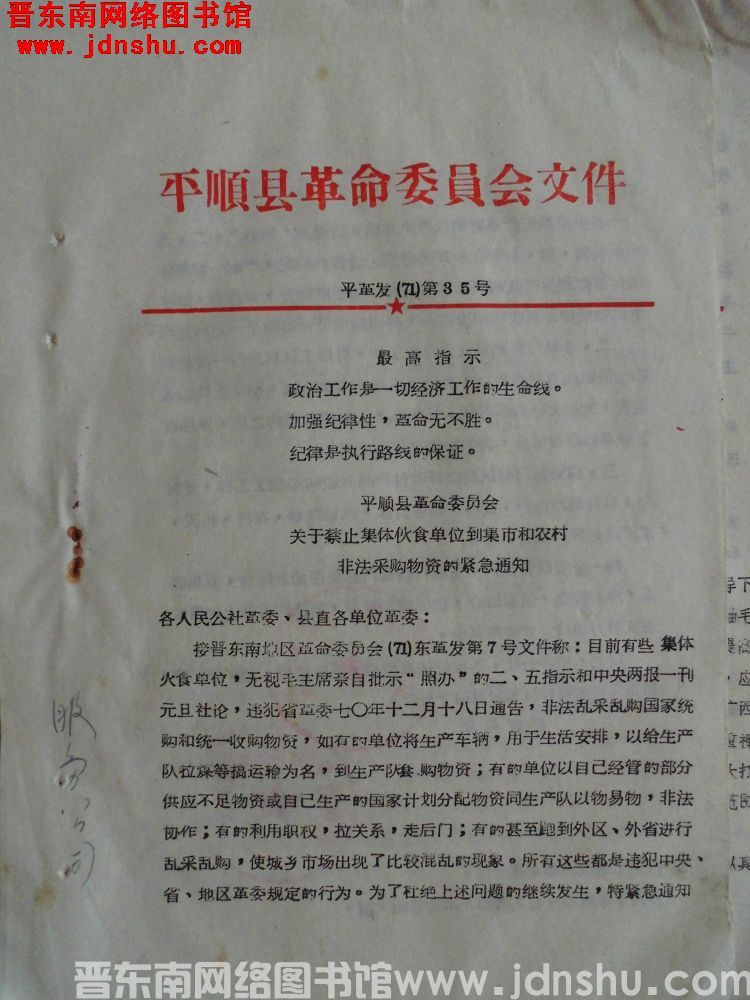 晋东南网络图书馆
www.jdnshu.com
平順县革命委員会文件
平革发(71)第35号
最高指示
政治工作是一切经济工作的生命线。
加强纪律性，革命无不胜。
纪律是执行路线的保证。
平顺县革命委员会
关于禁止集体伙食单位到集市和农村
非法采购物资的紧急通知
各人民公社革委、县直各单位革委：
接晋东南地区革命委员会(71)东革发第7号文件称：目前有些集体
伙食单位，无视毛主席亲自批示“照办”的二、五指示和中央两报一刊
元旦社论，违犯省革委七〇年十二月十八日通告，非法乱采乱购国家统
购和统一收购物资，如有的单位将生产车辆，用于生活安排，以给生产
队拉煤等搞运输为名，到生产队套购物资；有的单位以自己经管的部分
供应不足物资或自己生产的国家计划分配物资同生产队以物易物，非法
协作；有的利用职权，拉关系，走后门；有的甚至跑到外区、外省进行
乱采乱购，使城乡市场出现了比较混乱的现象。所有这些都是违犯中央、
省、地区革委规定的行为。为了杜绝上述问题的继续发生，特紧急通知
公司
导下
油毛
提高
，应
广西
重视
大打
范围
认真
晋东南网络图书馆www.jdnshu.com